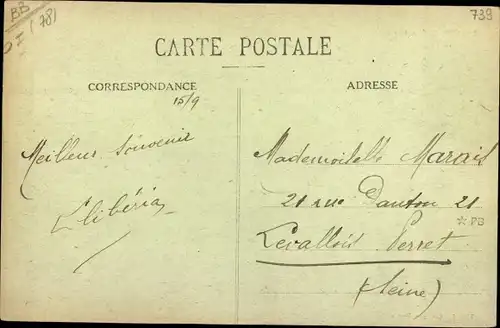 BB
(78)
739
CARTE POSTALE
CORRESPONDANCE
ADRESSE
15/9
Meilleur Souvenir
Mademoiselle Marais
21 rue Danton 21
* PB
Levallois Perret
(Seine)